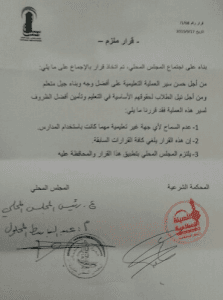 - قرار ملزم -
بناء على اجتماع المجلس المحلي، تم اتخاذ قرار بالإجماع على ما يلي:
من أجل حسن سير العملية التعليمية على أفضل وجه وبناء جيل متعلم
ومن أجل نيل الطلاب لحقوقهم الأساسية في التعليم وتأمين أفضل الظروف
لسير هذه العملية فقد قررنا ما يلي:
1- عدم السماح لأي جهة غير تعليمية مهما كانت باستخدام المدارس.
2- إن هذا القرار يلغي كافة القرارات السابقة.
3- يلتزم المجلس المحلي بتطبيق هذا القرار والمحافظة عليه
المحكمة الشرعية
المجلس المحلي
رئيس المجلس المحلي